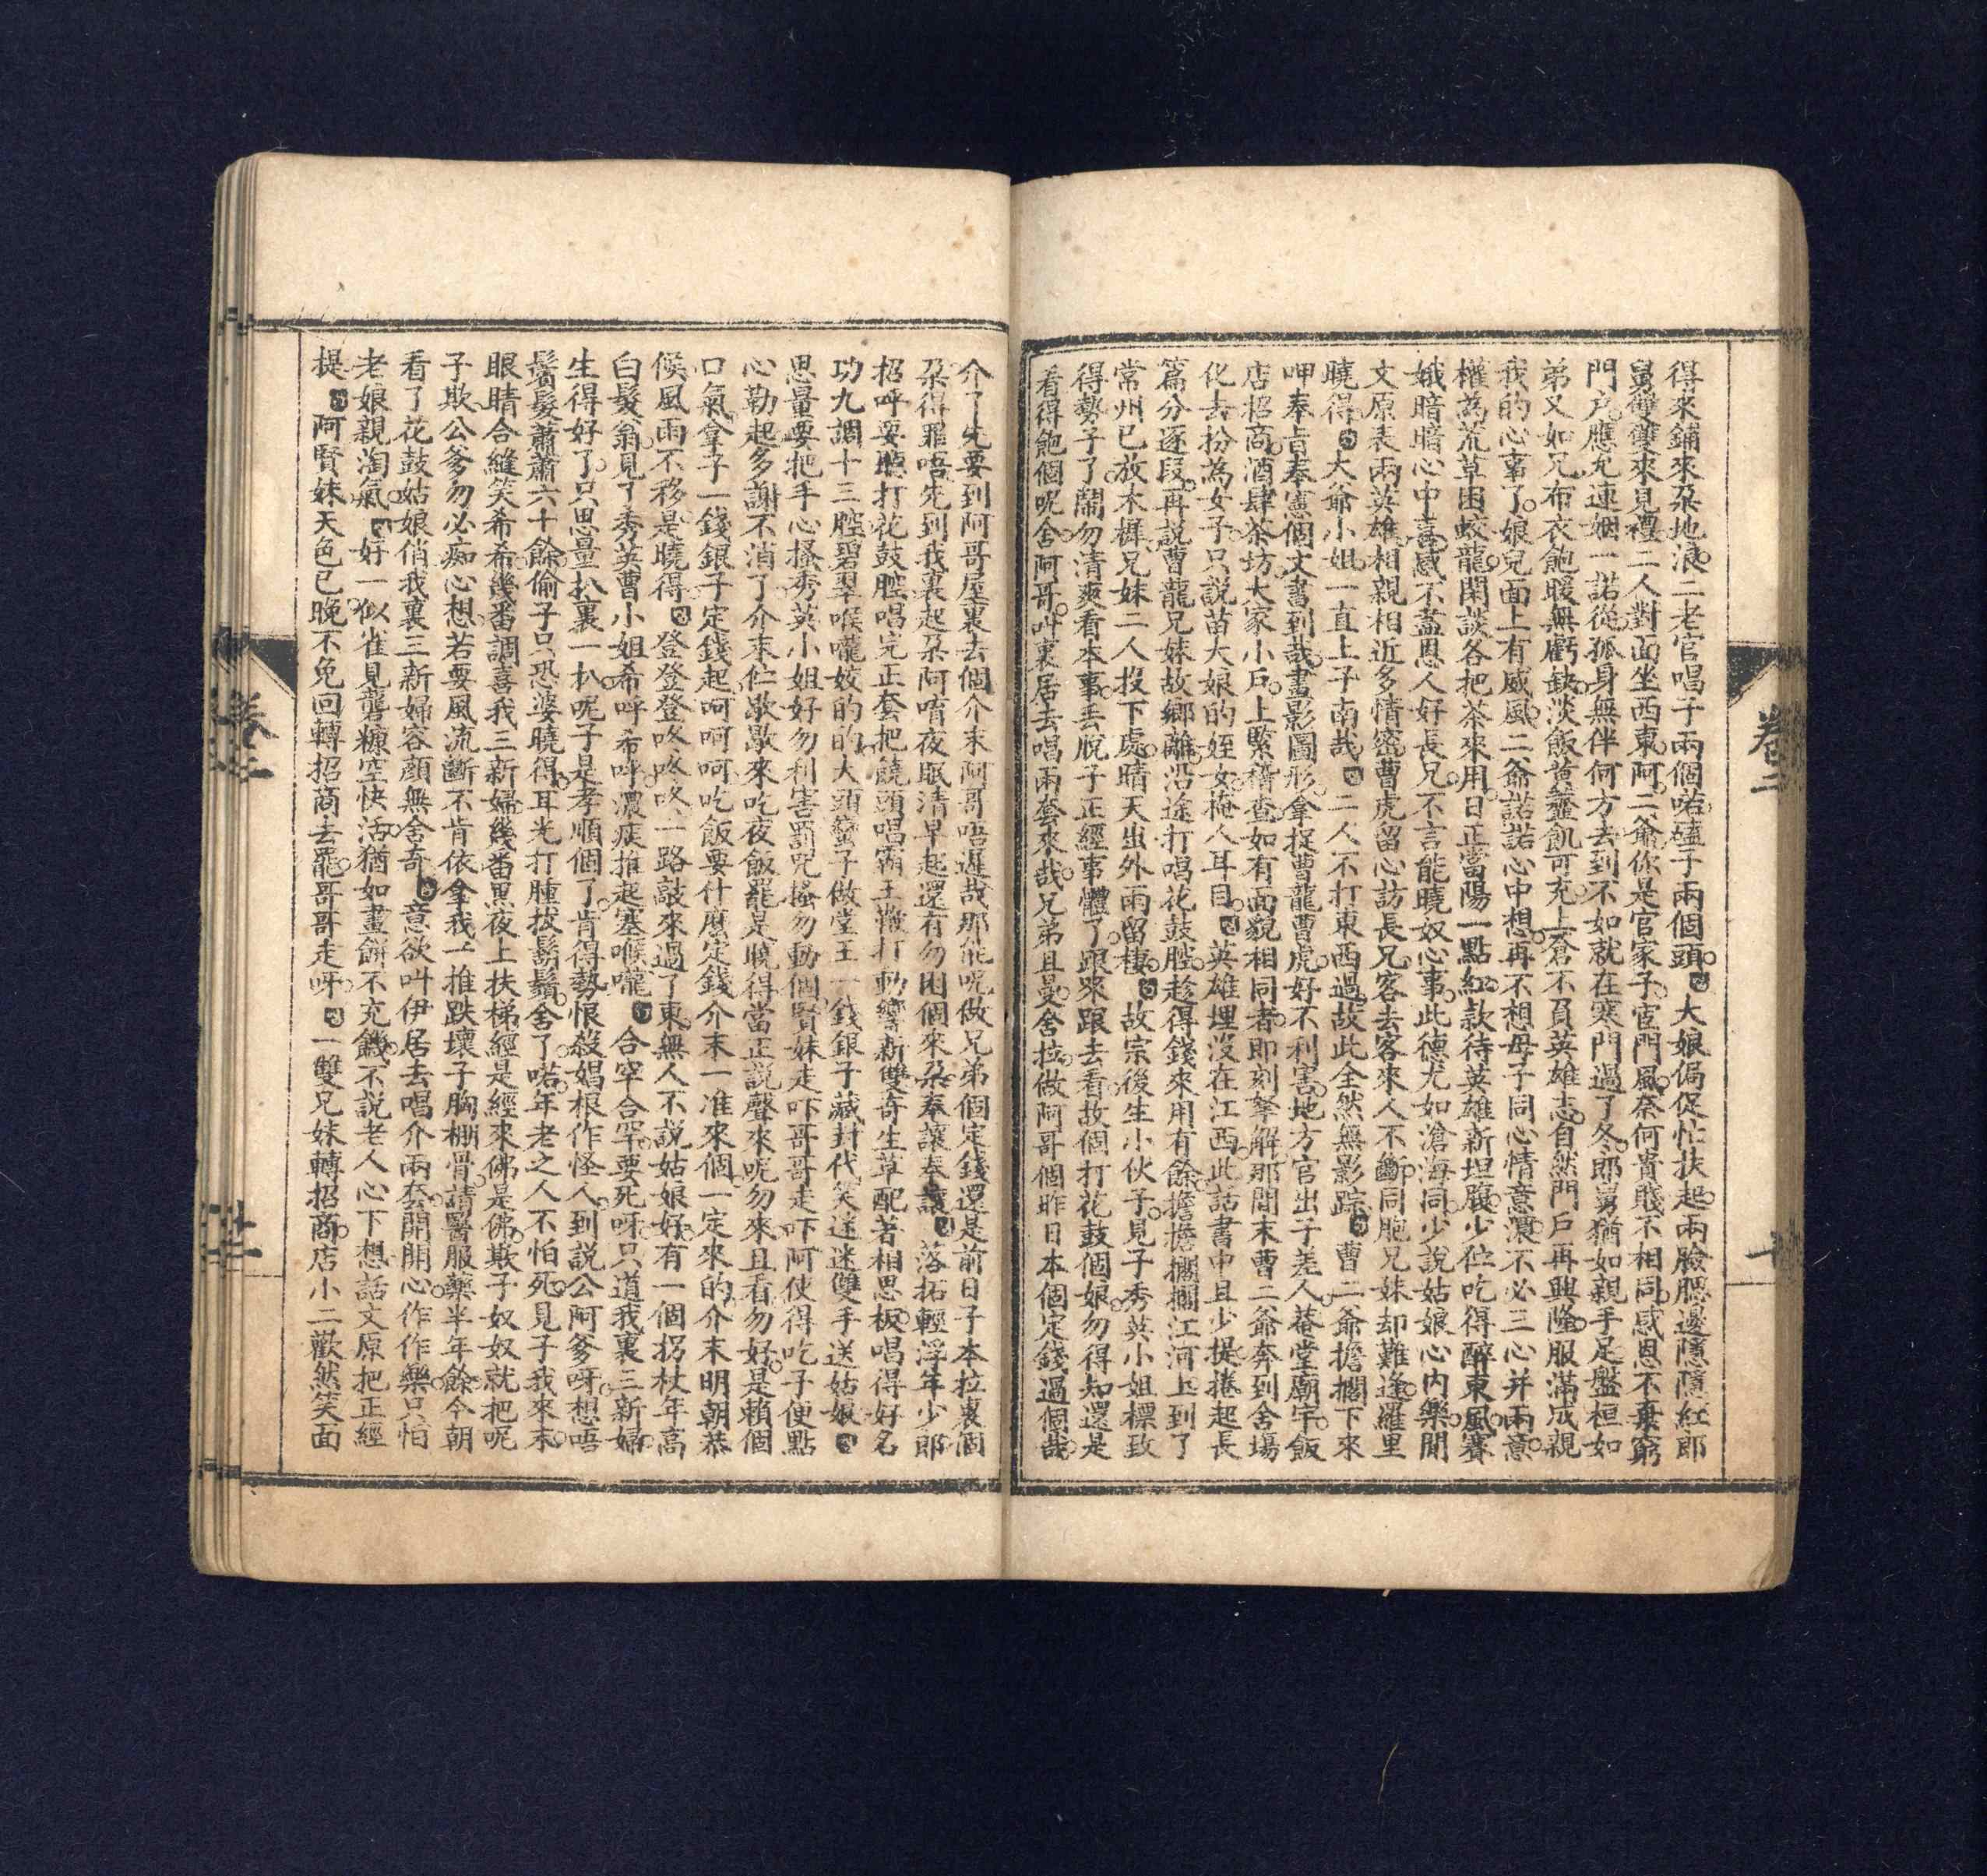 得來鋪來朶地浪二老官唱子兩個喏磕子兩個頭 大娘侷促忙扶起兩臉腮邊隱隱紅郎
舅雙雙來見禮二人對面坐西東阿二爺你是官家子宦門風奈何貴賤不相同感恩不棄窮
門戶應允連姻一諾從孤身無伴何方去到不如就在寒門過了冬郎舅猶如親手足盤桓如
弟又如兄布衣飽暖無虧缺淡飯黃虀飢可充上蒼不負英雄志自然門戶再興隆服滿成親
我的心事了娘兒面上有威風二爺諾諾心中想再不想母子同心情意濃不必三心并兩意
權為荒草困蛟龍閑談各把茶來用日正當陽一點紅款待英雄新坦腹少位吃得醉東風賽
娥暗暗心中喜感不盡恩人好長兄不言能曉奴心事此德尤如滄海同少說姑娘心內樂聞
文原表兩英雄相親相近多情密曹虎留心訪長兄客去客來人不斷同胞兄妹却難逢羅里
曉得 大爺小姐一直上子南哉 二人不打東西過故此全然無影踪 曹二爺擔擱下來
呷奉旨奉憲個文書到哉畫影圖形拿捉曹龍曹虎好不利害地方官出子差人菴堂廟宇飯
店招商酒肆茶坊大家小戶上緊稽查如有面貌相同者即刻拏解那間末曹二爺奔到舍場
化去扮為女子只說苗大娘的姪女掩人耳目 英雄埋沒在江西此話書中且少提捲起長
篇分逐段再說曹龍兄妹故鄉離沿途打唱花鼓腔趁得錢來用有餘擔擔擱擱江河上到了
常州已放木樨兄妹二人投下處晴天出外雨留棲 故宗後生小伙子見子秀英小姐標致
得勢子了鬧勿清爽看本事丢脫子正經事體了跟來跟去看故個打花鼓個娘勿得知還是
看得飽個呢舍阿哥叫裏居去唱兩套來哉兄弟且曼舍拉做阿哥個昨日本個定錢過個哉
介了先要到阿哥屋裏去個介末阿哥唔遲哉那能呢做兄弟個定錢還是前日子本拉裏個
朶得罪唔先到我裏起朶阿唷夜眠清早起還有勿困個來朶奉讓奉讓 落拓輕浮年少郎
招呼要聽打花鼓腔唱完正套把饒頭唱霸王鞭打動響新雙奇生草配著相思板唱得好名
功九調十三腔碧翠喉嚨妓的的大頭蠻子做堂王一錢銀子藏封代笑迷迷雙手送姑娘
思量要把手心搔秀英小姐好勿利害罰咒搔勿動個賢妹走吓哥哥走吓阿使得吃子便點
心勒起多謝不消了介末伫歇歇來吃夜飯罷是曉得當正說聲來呢勿來且看勿好是賴個
口氣拿子一錢銀子定錢起呵呵呵吃飯要什麼定錢介末一准來個一定來的介末明朝恭
候風雨不移是曉得 登登登咚咚咚一路敲來過了東無人不說姑娘好有一個拐杖年高
白髮翁見了秀英曹小姐希呼希呼濃痰推起塞喉嚨 合罕合罕要死呀只道我裏三新婦
生得好了只思量扒裏一扒呢子是孝順個了肯得勢恨殺娼根作怪人到說公阿爹呀想唔
鬢髮蕭蕭六十餘偷子只恐婆曉得耳光打腫拔鬍鬚舍了喏年老之人不怕死見子我來末
眼睛合縫笑希希幾番調喜我三新婦幾番黑夜上扶梯經是經來佛是佛欺子奴奴就把呢
子欺公爹勿必痴心想若要風流斷不肯依拿我一推跌壞子胸棚骨請醫服藥半年餘今朝
看了花鼓姑娘俏我裏三新婦容顏無舍奇 意欲叫伊居去唱介兩套開開心作作樂只怕
老娘親淘氣 好一似雀見礱糠空快活猶如畫餅不充饑不說老人心下想話文原把正經
提 阿賢妹天色已晚不免回轉招商去罷哥哥走呀 一雙兄妹轉招商店小二歡然笑面
卷二
十
卷二